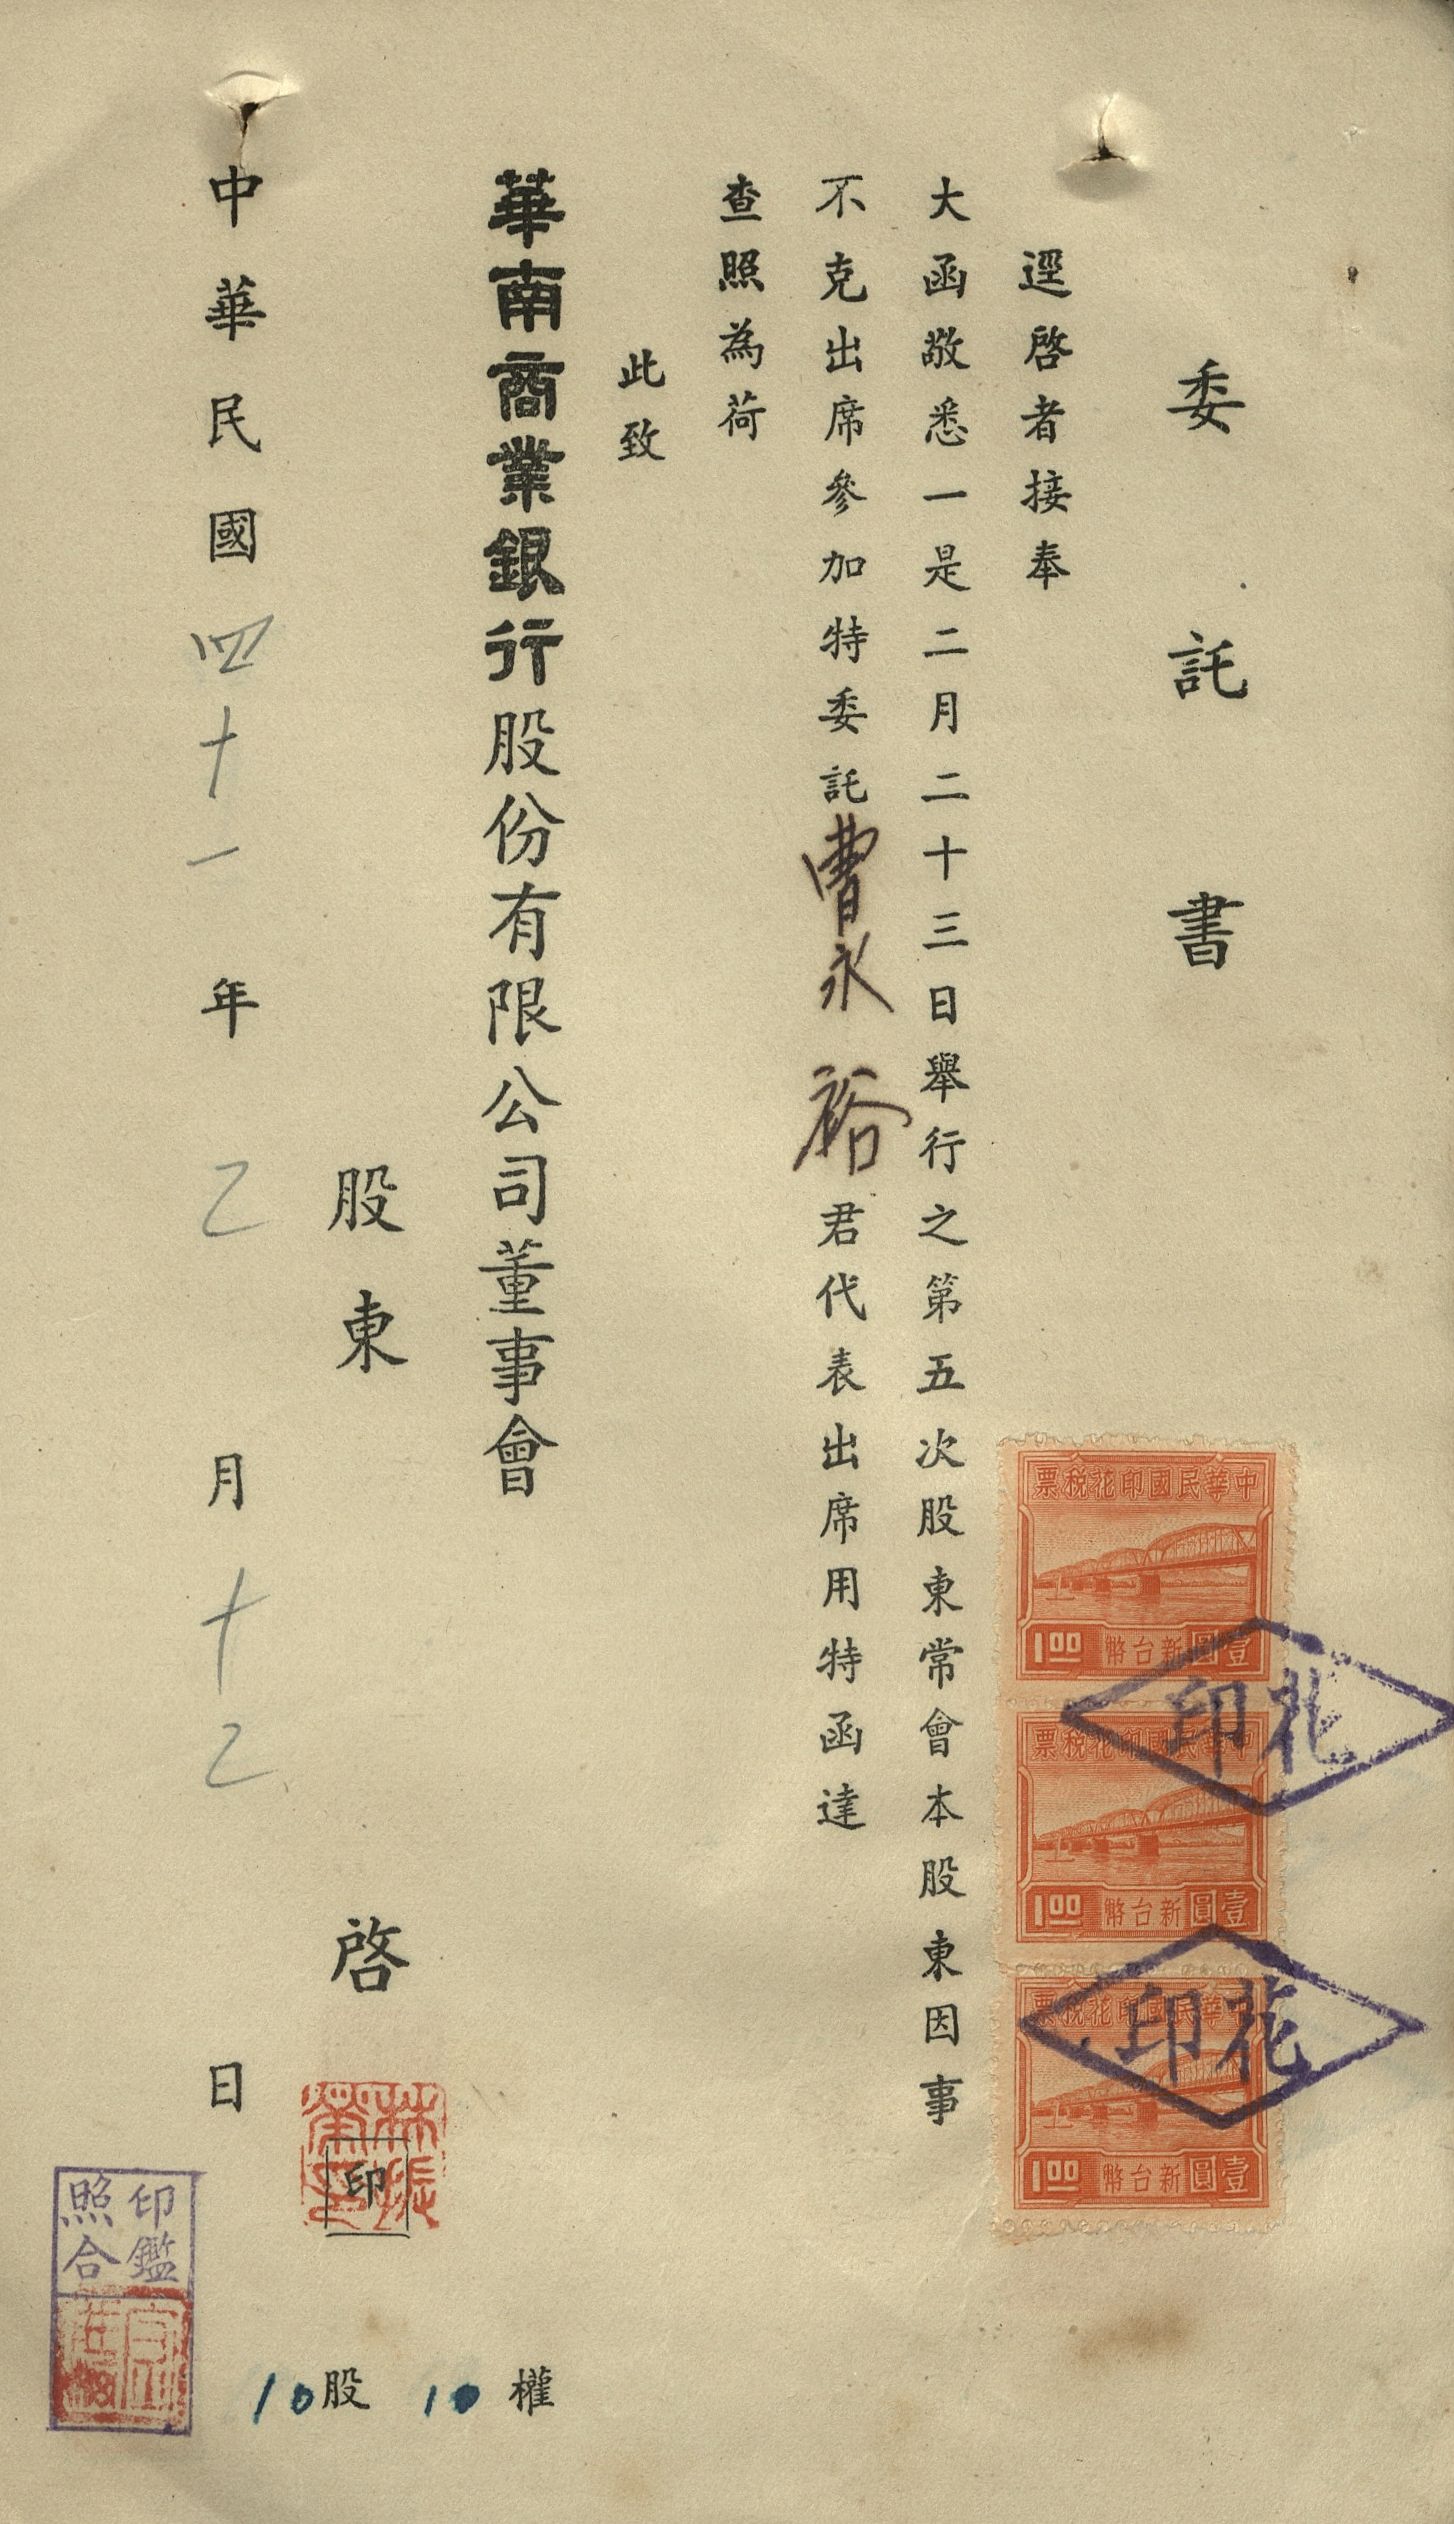 委託書
逕啓者接奉
大函敬悉一是二月二十三日舉行之第五次股東常會本股東因事
不克出席參加特委託曹永裕君代表出席用特函達
查照為荷
此致
華南商業銀行股份有限公司董事會
股東 啓 印
中華民國四十一年乙月十乙日
10股 10權
中華民國印花稅票
壹圓新台幣 1.00
中華民國印花稅票
壹圓新台幣 1.00
中華民國印花稅票
壹圓新台幣 1.00
花印
花印
印鑑
照合